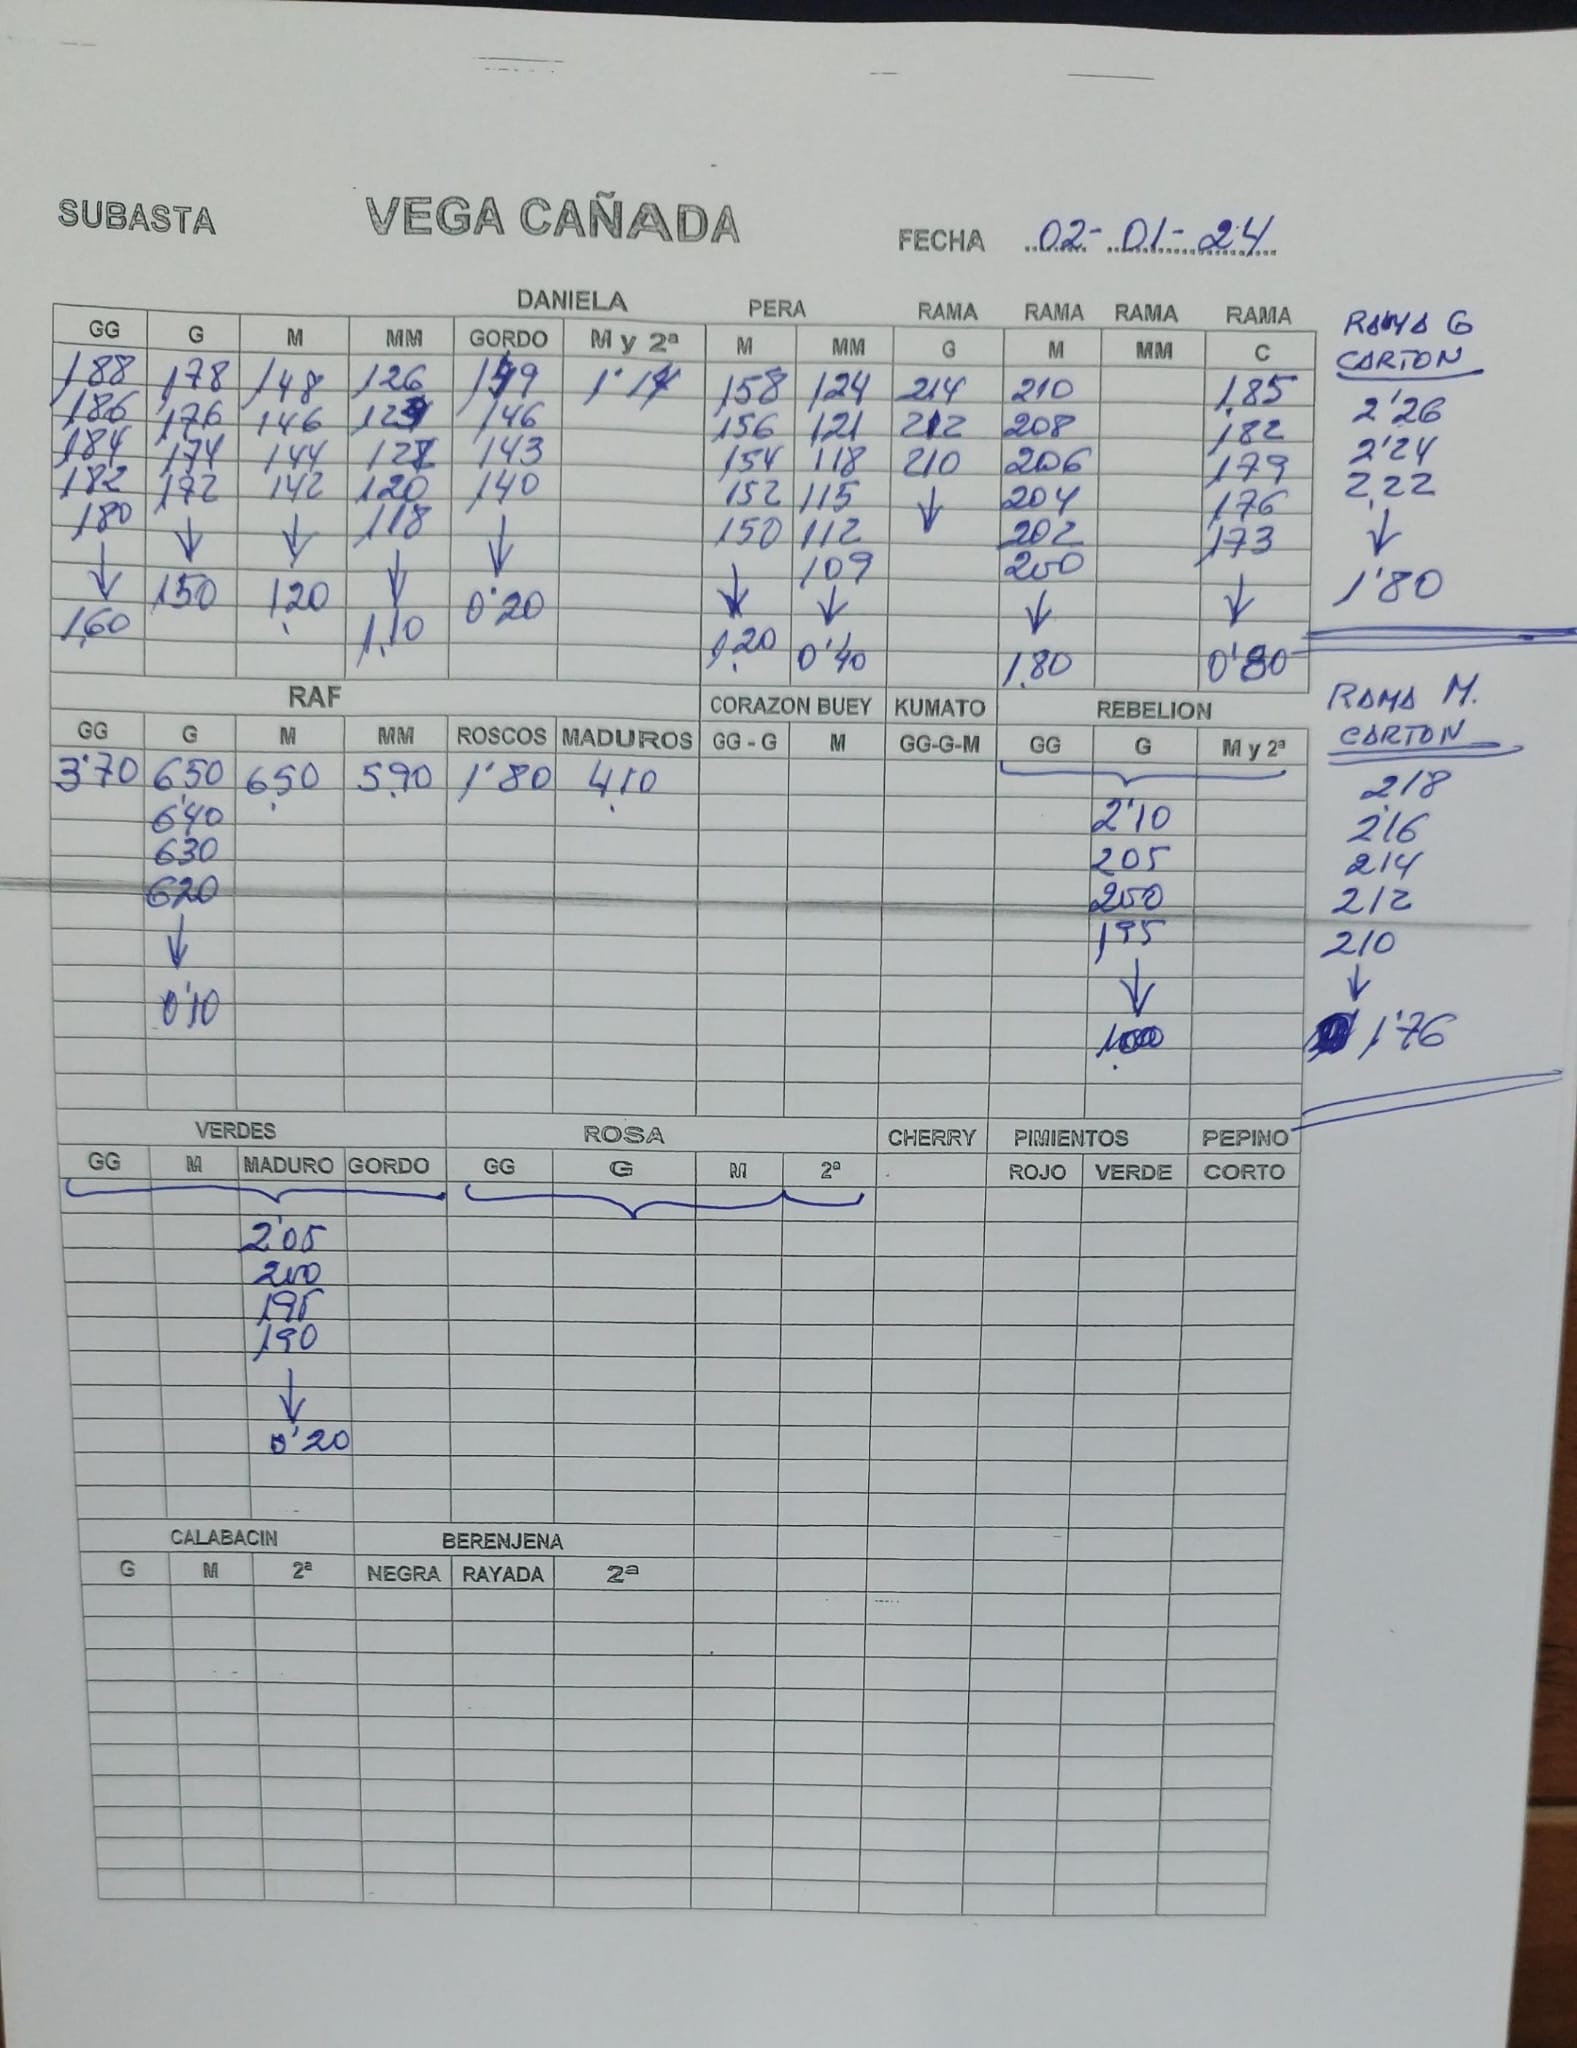 SUBASTA VEGA CAÑADA FECHA 02-01-24
DANIELA PERA RAMA RAMA RAMA RAMA RAMA G
GG G M MM GORDO M y 2ª M MM G M MM C CARTON
188 178 148 126 149 158 124 214 210 185 2'26
186 176 146 146 156 121 212 208 182 2'24
184 174 144 143 154 118 210 206 179 2,22
182 172 142 120 140 152 115 ↓ 204 176 ↓
180 ↓ ↓ 118 ↓ 150 112 202 173 1'80
↓ 150 120 ↓ 0'20 ↓ 109 200 ↓
160 1,10 1,20 ↓ ↓ 0'80
0'40 1,80
RAF CORAZON BUEY KUMATO REBELION RAMA M.
GG G M MM ROSCOS MADUROS GG - G M GG-G-M GG G M y 2ª CARTON
3'70 650 650 590 1'80 410 218
6'40 2'10 2'16
630 205 214
620 200 212
↓ 195 210
0'10 ↓ ↓
1,00 1'76
VERDES ROSA CHERRY PIMIENTOS PEPINO
GG M MADURO GORDO GG G M 2ª ROJO VERDE CORTO
2'05
200
195
190
↓
0'20
CALABACIN BERENJENA
G M 2ª NEGRA RAYADA 2ª